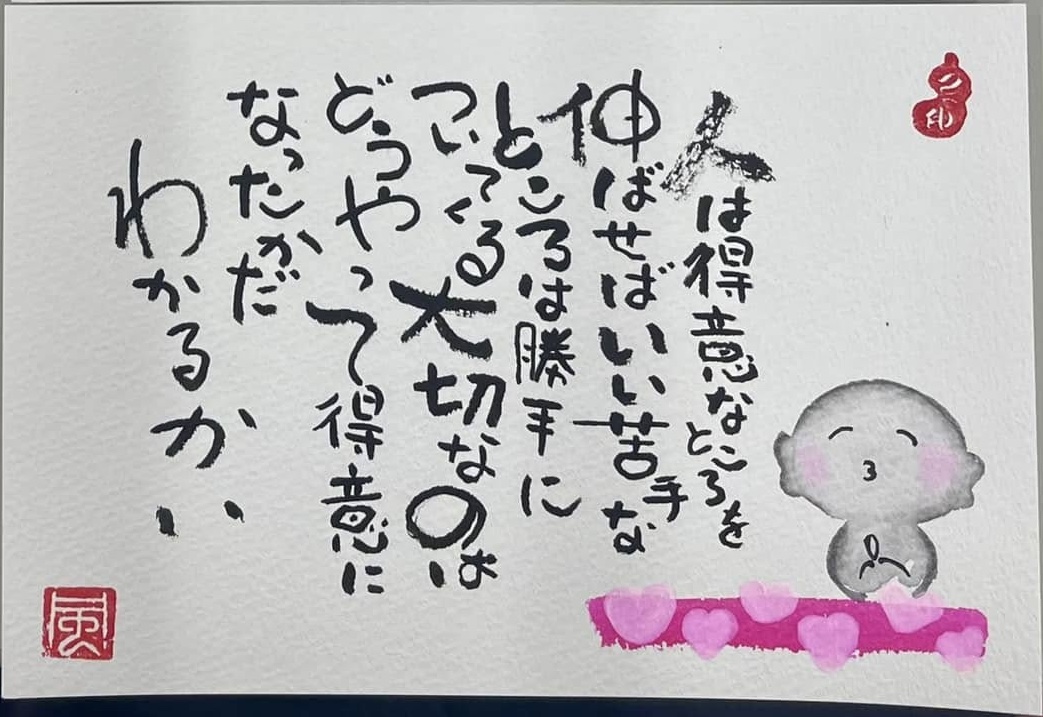 人は得意なところを
伸ばせばいい苦手な
ところは勝手に
ついてくる大切なのは
どうやって得意に
なったかだ
わかるかい
風